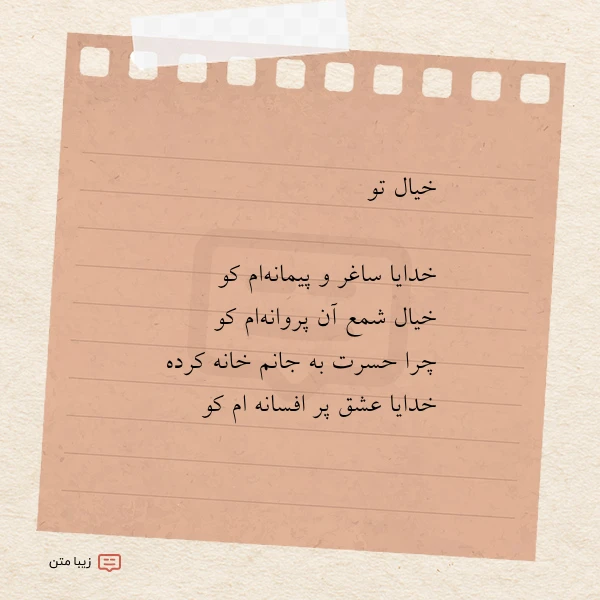 خیال تو
خدایا ساغر و پیمانه‌ام کو
خیال شمع آن پروانه‌ام کو
چرا حسرت به جانم خانه کرده
خدایا عشق پر افسانه ام کو
زیبا متن